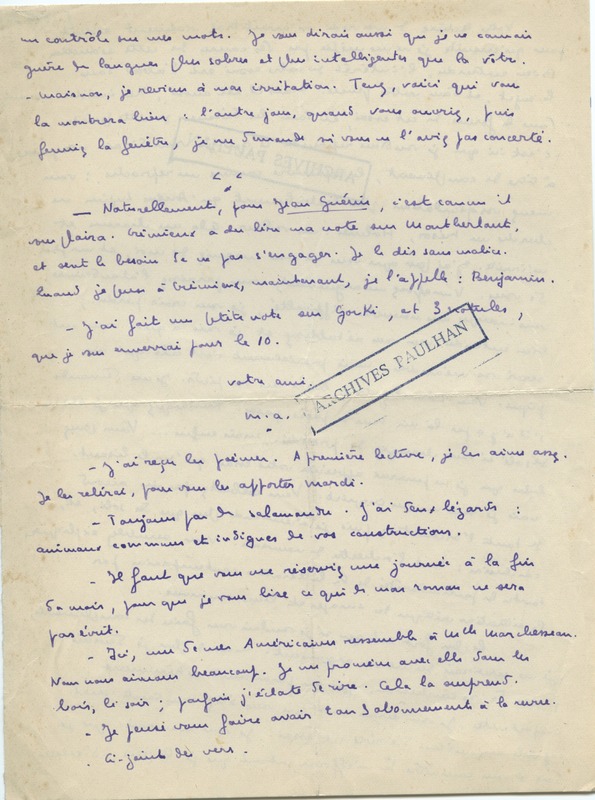 un contrôle sur mes mots. Je vous dirais aussi que je ne connais
guère de langues plus sobres et plus intelligentes que la vôtre.
- mais non, je reviens à mon irritation. Tenez, voici qui vous
la montrera bien : l'autre jour, quand vous ouvriez, puis
fermiez la fenêtre, je me demande si vous ne l'aviez pas concerté.
— Naturellement, pour Jean Guérin, c'est comme il
vous plaira. Crémieux a dû lire ma note sur Montherlant,
et sent le besoin de ne pas s'engager. Je le dis sans malice.
Quand je pense à Crémieux, maintenant, je l'appelle : Benjamin.
- J'ai fait une petite note sur Gorki, et 3 notules,
que je vous enverrai pour le 10.
votre ami.
m.a.
ARCHIVES PAULHAN
- J'ai reçu les poèmes. A première lecture, je les aime assez.
Je les relirai, pour vous les apporter mardi.
- Toujours pas de salamandre. J'ai deux lézards :
animaux communs et indignes de vos constructions.
- Il faut que vous me réserviez une journée à la fin
du mois, pour que je vous lise ce qui de mon roman ne sera
pas écrit.
- Ici, une de mes Américaines ressemble à Melle Marchesseau.
Nous nous aimons beaucoup. Je me promène avec elle dans les
bois, le soir ; parfois j'éclate de rire. Cela la surprend.
- Je pense vous faire avoir 2 ou 3 abonnements à la revue.
Ci-joints des vers.